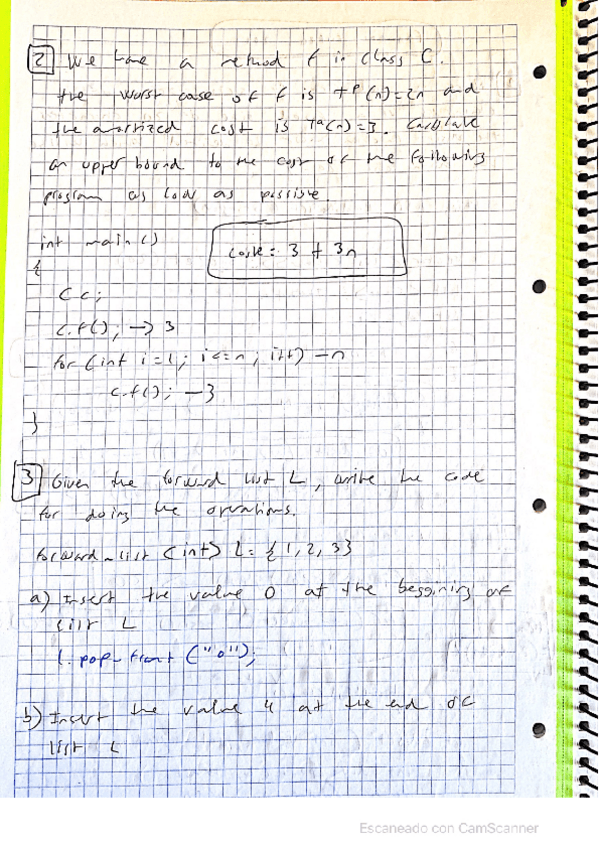 2 We have a method f in class C.
the worst case of f is T^P(n)=2n and
the amortized cost is T^a(n)=3. Calculate
an upper bound to the cost of the following
program as low as possible.
int main()
coste = 3 + 3n
{
C c;
c.f(); → 3
for (int i=1; i<=n; i++) - n
c.f(); - 3
}
3 Given the forward list L, write the code
for doing the operations.
forward_list (int) L = {1, 2, 3}
a) Insert the value 0 at the beggining of
list L
l.pop_front ("0");
b) Insert the value 4 at the end of
list L
Escaneado con CamScanner